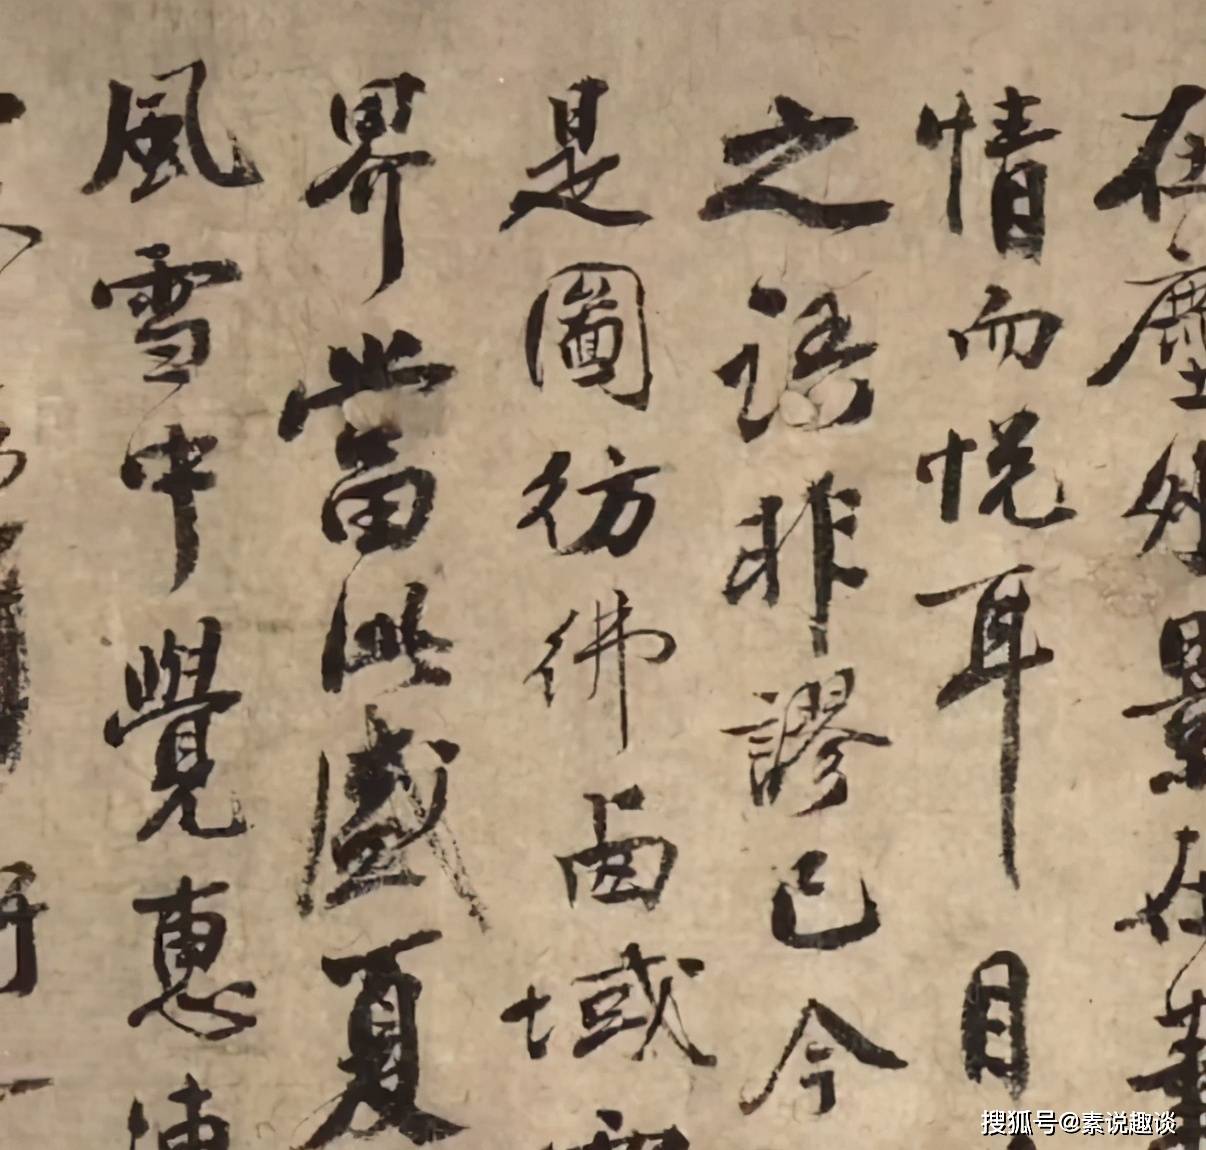 在塵外景在畫
情而悦耳目
之語非謬已今
是圖彷彿西域
界當此盛夏
風雪中覺惠
搜狐号@素说趣谈